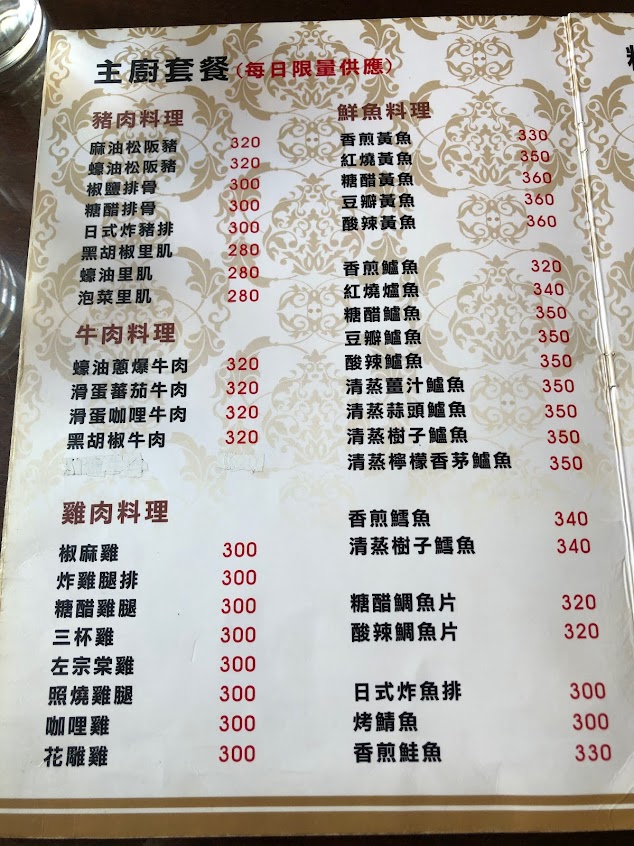 主廚套餐(每日限量供應)
豬肉料理
麻油松阪豬 320
蠔油松阪豬 320
椒鹽排骨 300
糖醋排骨 300
日式炸豬排 300
黑胡椒里肌 280
蠔油里肌 280
泡菜里肌 280
牛肉料理
蠔油蔥爆牛肉 320
滑蛋蕃茄牛肉 320
滑蛋咖哩牛肉 320
黑胡椒牛肉 320
雞肉料理
椒麻雞 300
炸雞腿排 300
糖醋雞腿 300
三杯雞 300
左宗棠雞 300
照燒雞腿 300
咖哩雞 300
花雕雞 300
鮮魚料理
香煎黃魚 330
紅燒黃魚 350
糖醋黃魚 360
豆瓣黃魚 360
酸辣黃魚 360
香煎鱸魚 320
紅燒爐魚 340
糖醋鱸魚 350
豆瓣鱸魚 350
酸辣鱸魚 350
清蒸薑汁鱸魚 350
清蒸蒜頭鱸魚 350
清蒸樹子鱸魚 350
清蒸檸檬香茅鱸魚 350
香煎鱈魚 340
清蒸樹子鱈魚 340
糖醋鯛魚片 320
酸辣鯛魚片 320
日式炸魚排 300
烤鯖魚 300
香煎鮭魚 330